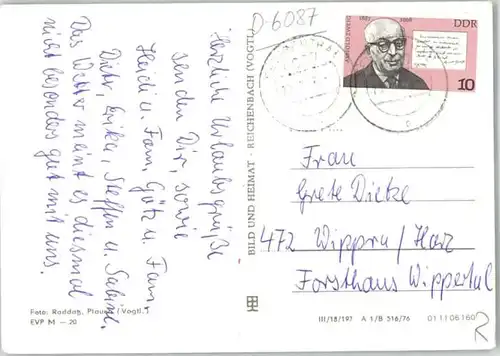 D-6087
Herzliche Urlaubsgrüße
senden Dir, sowie
Heidi u. Fam. Götz u. Fam.
Dieter, Erika, Steffen u. Sabine.
Das Wetter meint es diesmal
nicht besonders gut mit uns.
Foto: Raddatz, Plauen (Vogtl.)
EVP M — 20
BILD UND HEIMAT · REICHENBACH (VOGTL)
ARNOLD ZWEIG
1887 1968
DDR
10
Frau
Grete Dietze
472 Wippra / Harz
Forsthaus Wippertal
III/18/197 A 1/B 516/76 01 11 06 160
R